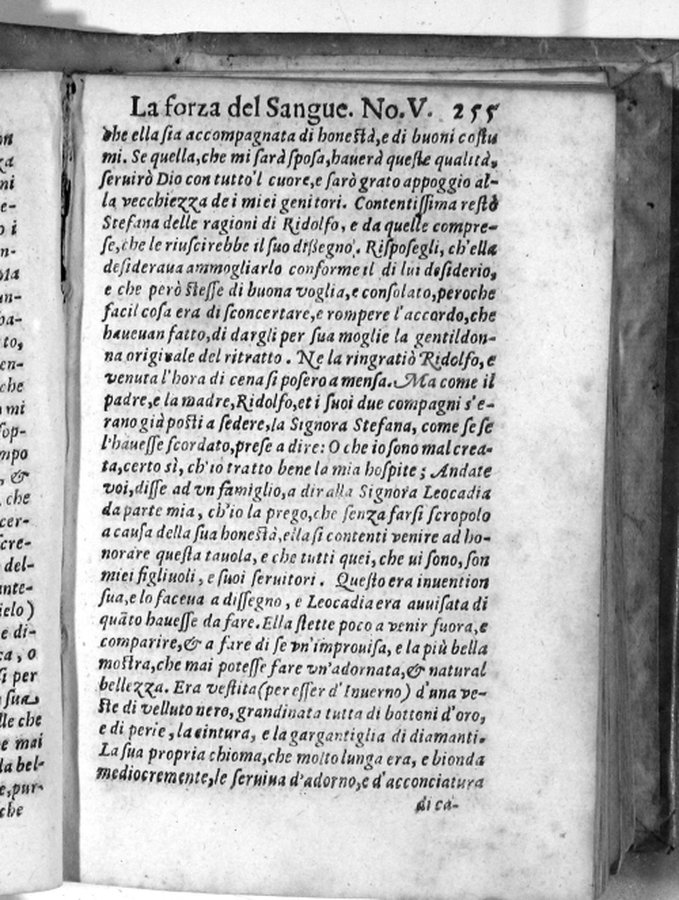 La forza del Sangue. No. V. 255
che ella sia accompagnata di honestà, e di buoni costu
mi. Se quella, che mi sarà sposa, hauerà queste qualità,
seruirò Dio con tutto'l cuore, e sarò grato appoggio al-
la vecchiezza de i miei genitori. Contentissima restò
Stefana delle ragioni di Ridolfo, e da quelle compre-
se, che le riuscirebbe il suo dissegno. Risposegli, ch'ella
desideraua ammogliarlo conforme il di lui desiderio,
e che però stesse di buona voglia, e consolato, peroche
facil cosa era di sconcertare, e rompere l'accordo, che
haueuan fatto, di dargli per sua moglie la gentildon-
na originale del ritratto. Ne la ringratiò Ridolfo, e
venuta l'hora di cena si posero a mensa. Ma come il
padre, e la madre, Ridolfo, et i suoi due compagni s'e-
rano già posti a sedere, la Signora Stefana, come se se
l'hauesse scordato, prese a dire: O che io sono mal crea-
ta, certo sì, ch'io tratto bene la mia hospite; Andate
voi, disse ad vn famiglio, a dir alla Signora Leocadia
da parte mia, ch'io la prego, che senza farsi scropolo
a causa della sua honestà, ella si contenti venire ad ho-
norare questa tauola, e che tutti quei, che ui sono, son
miei figliuoli, e suoi seruitori. Questo era inuention
sua, e lo faceua a dissegno, e Leocadia era auuisata di
quãto hauesse da fare. Ella stette poco a venir fuora, e
comparire, & a fare di se vn'improuisa, e la più bella
mostra, che mai potesse fare vn'adornata, & natural
bellezza. Era vestita (per esser d'Inuerno) d'una ve-
ste di velluto nero, grandinata tutta di bottoni d'oro,
e di perle, la cintura, e la gargantiglia di diamanti.
La sua propria chioma, che molto lunga era, e bionda
mediocremente, le seruiua d'adorno, e d'acconciatura
di ca-